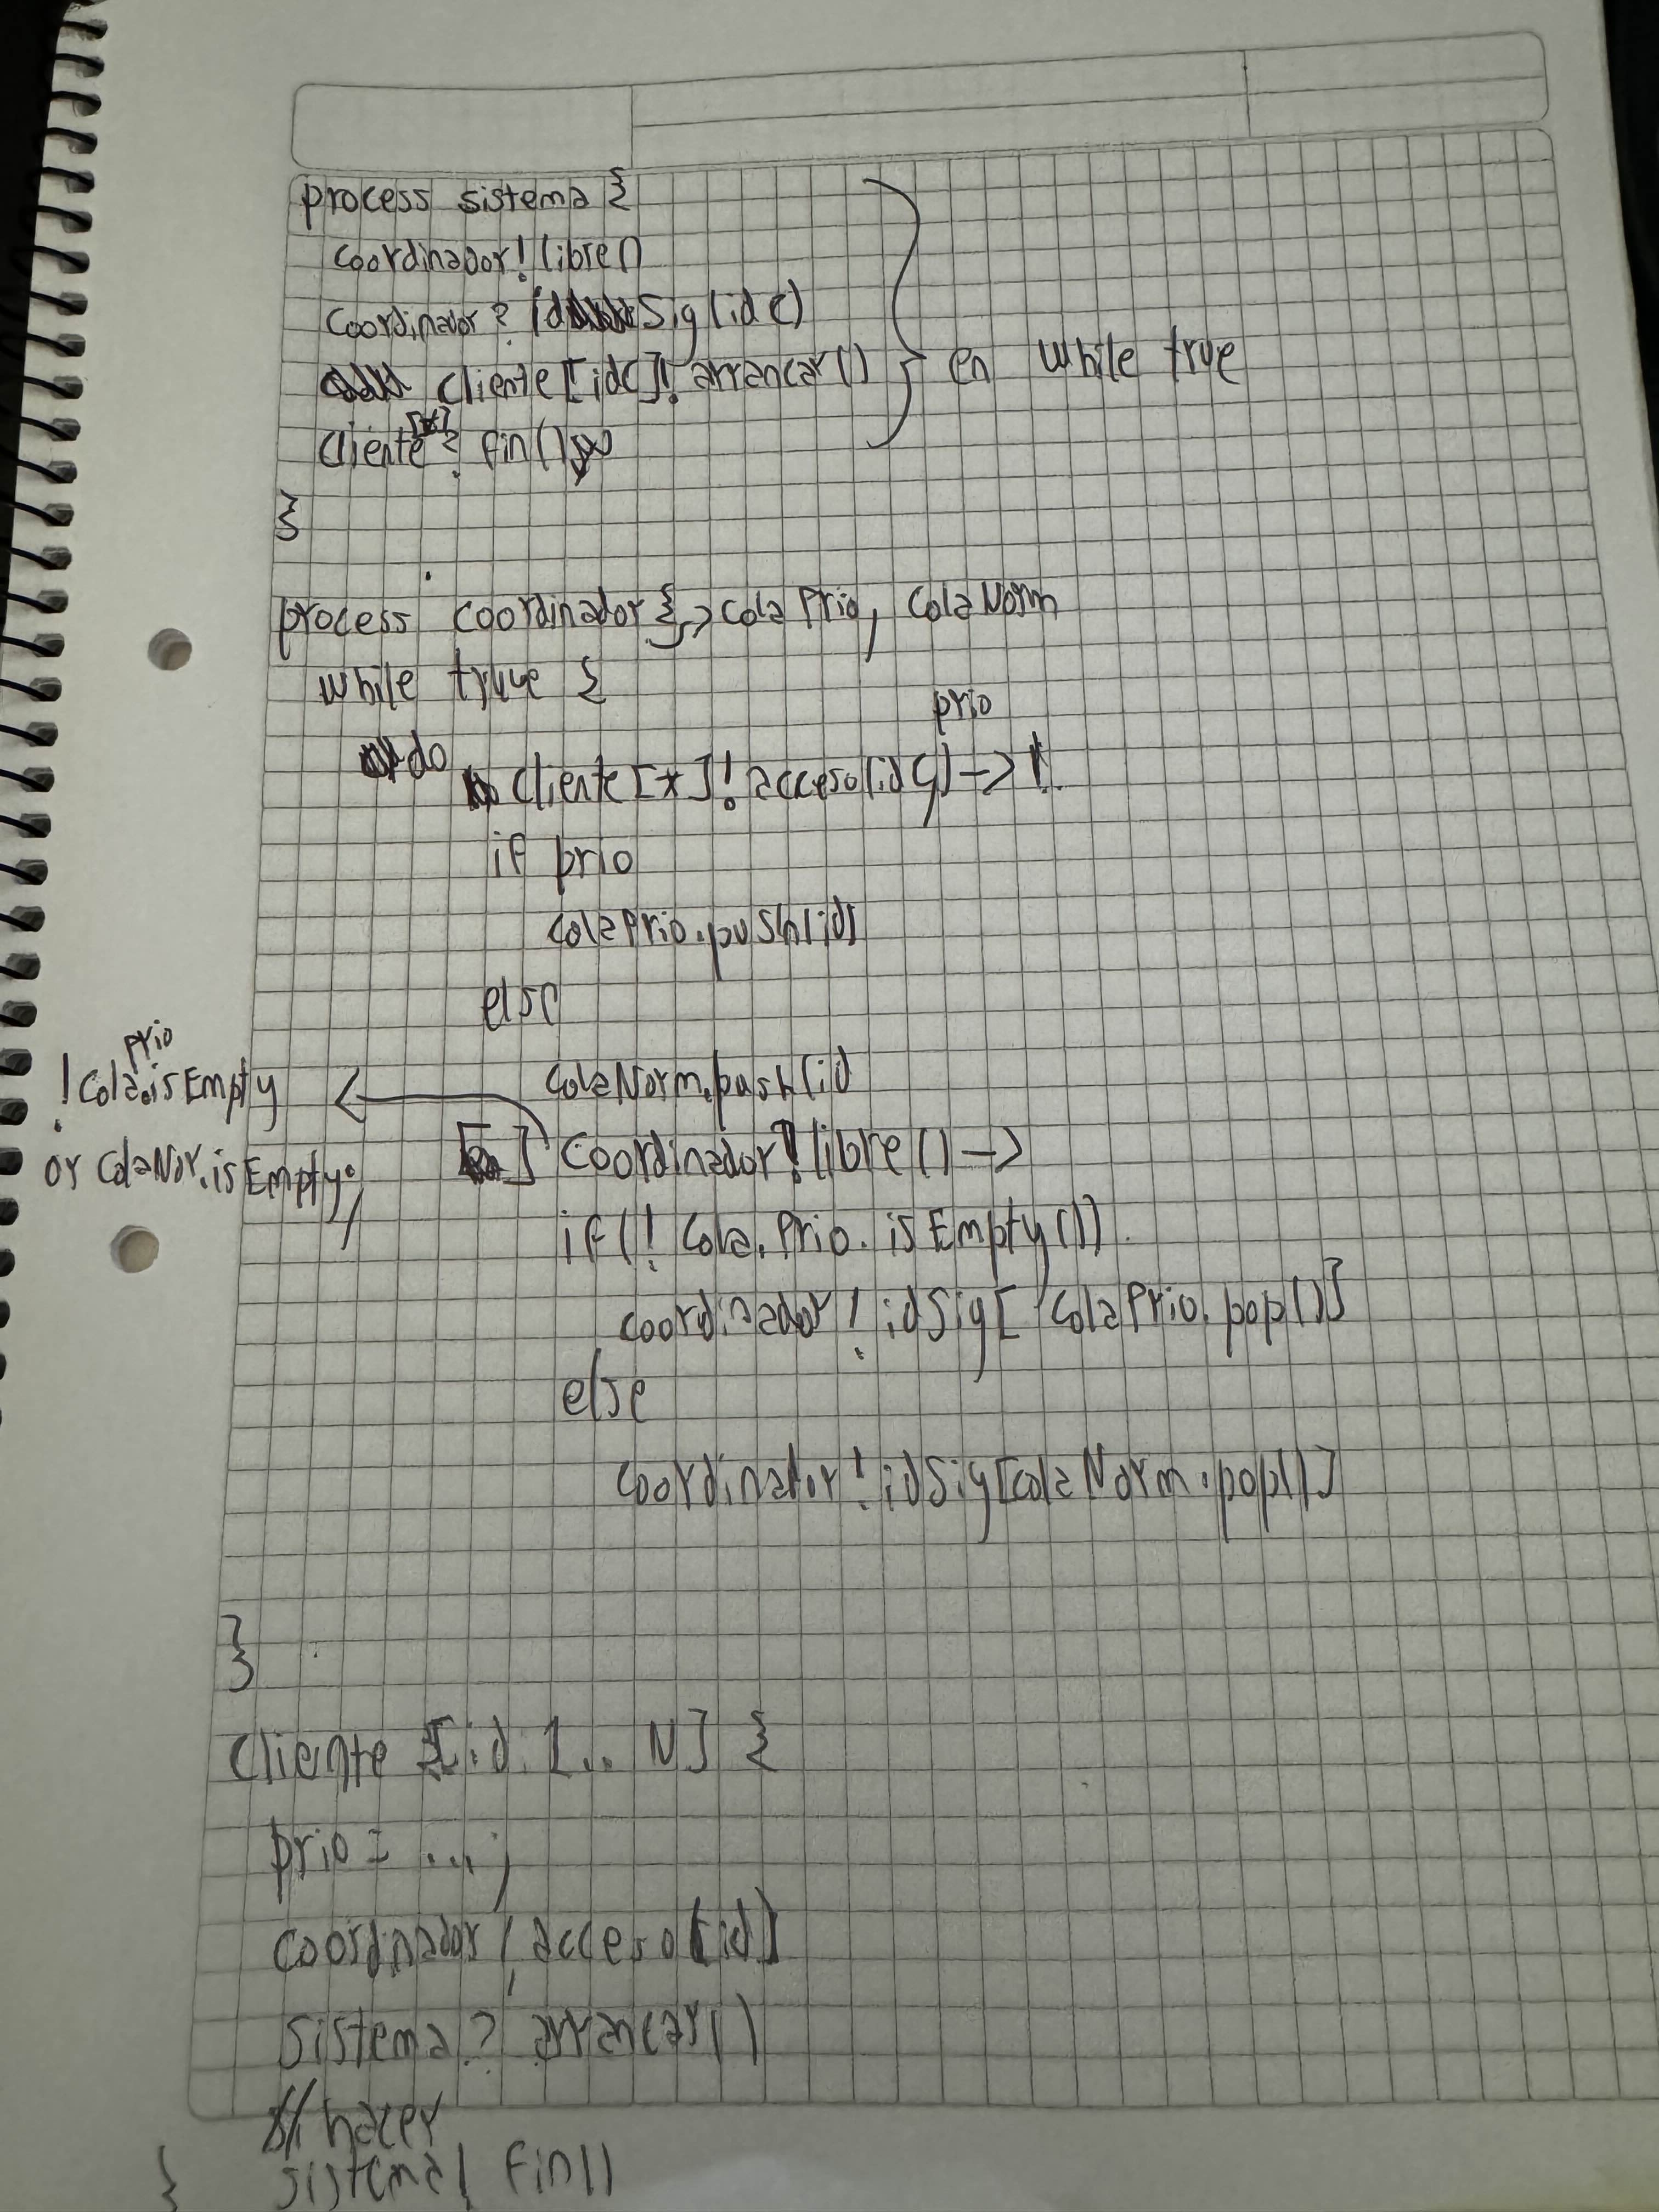 process sistema {
coordinador! libre()
coordinador? Sig(idc)
cliente[idc]! arrancar() } en while true
cliente[*]? fin()
}
process coordinador { -> cola Prio, cola Norm
while true {
do cliente[*]! acceso(idc, prio) ->
if prio
colaPrio.push(id)
else
colaNorm.push(id
[] coordinador! libre() ->
! Cola prio.isEmpty
or ColaNor.isEmpty;
if(! Cola.Prio.isEmpty())
coordinador! idSig[ colaPrio.pop()]
else
coordinador! idSig[colaNorm.pop()]
}
cliente [id: 1.. N] {
prio = ...;
coordinador! acceso(id)
sistema? arrancar()
// hacer
sistema! fin()
}